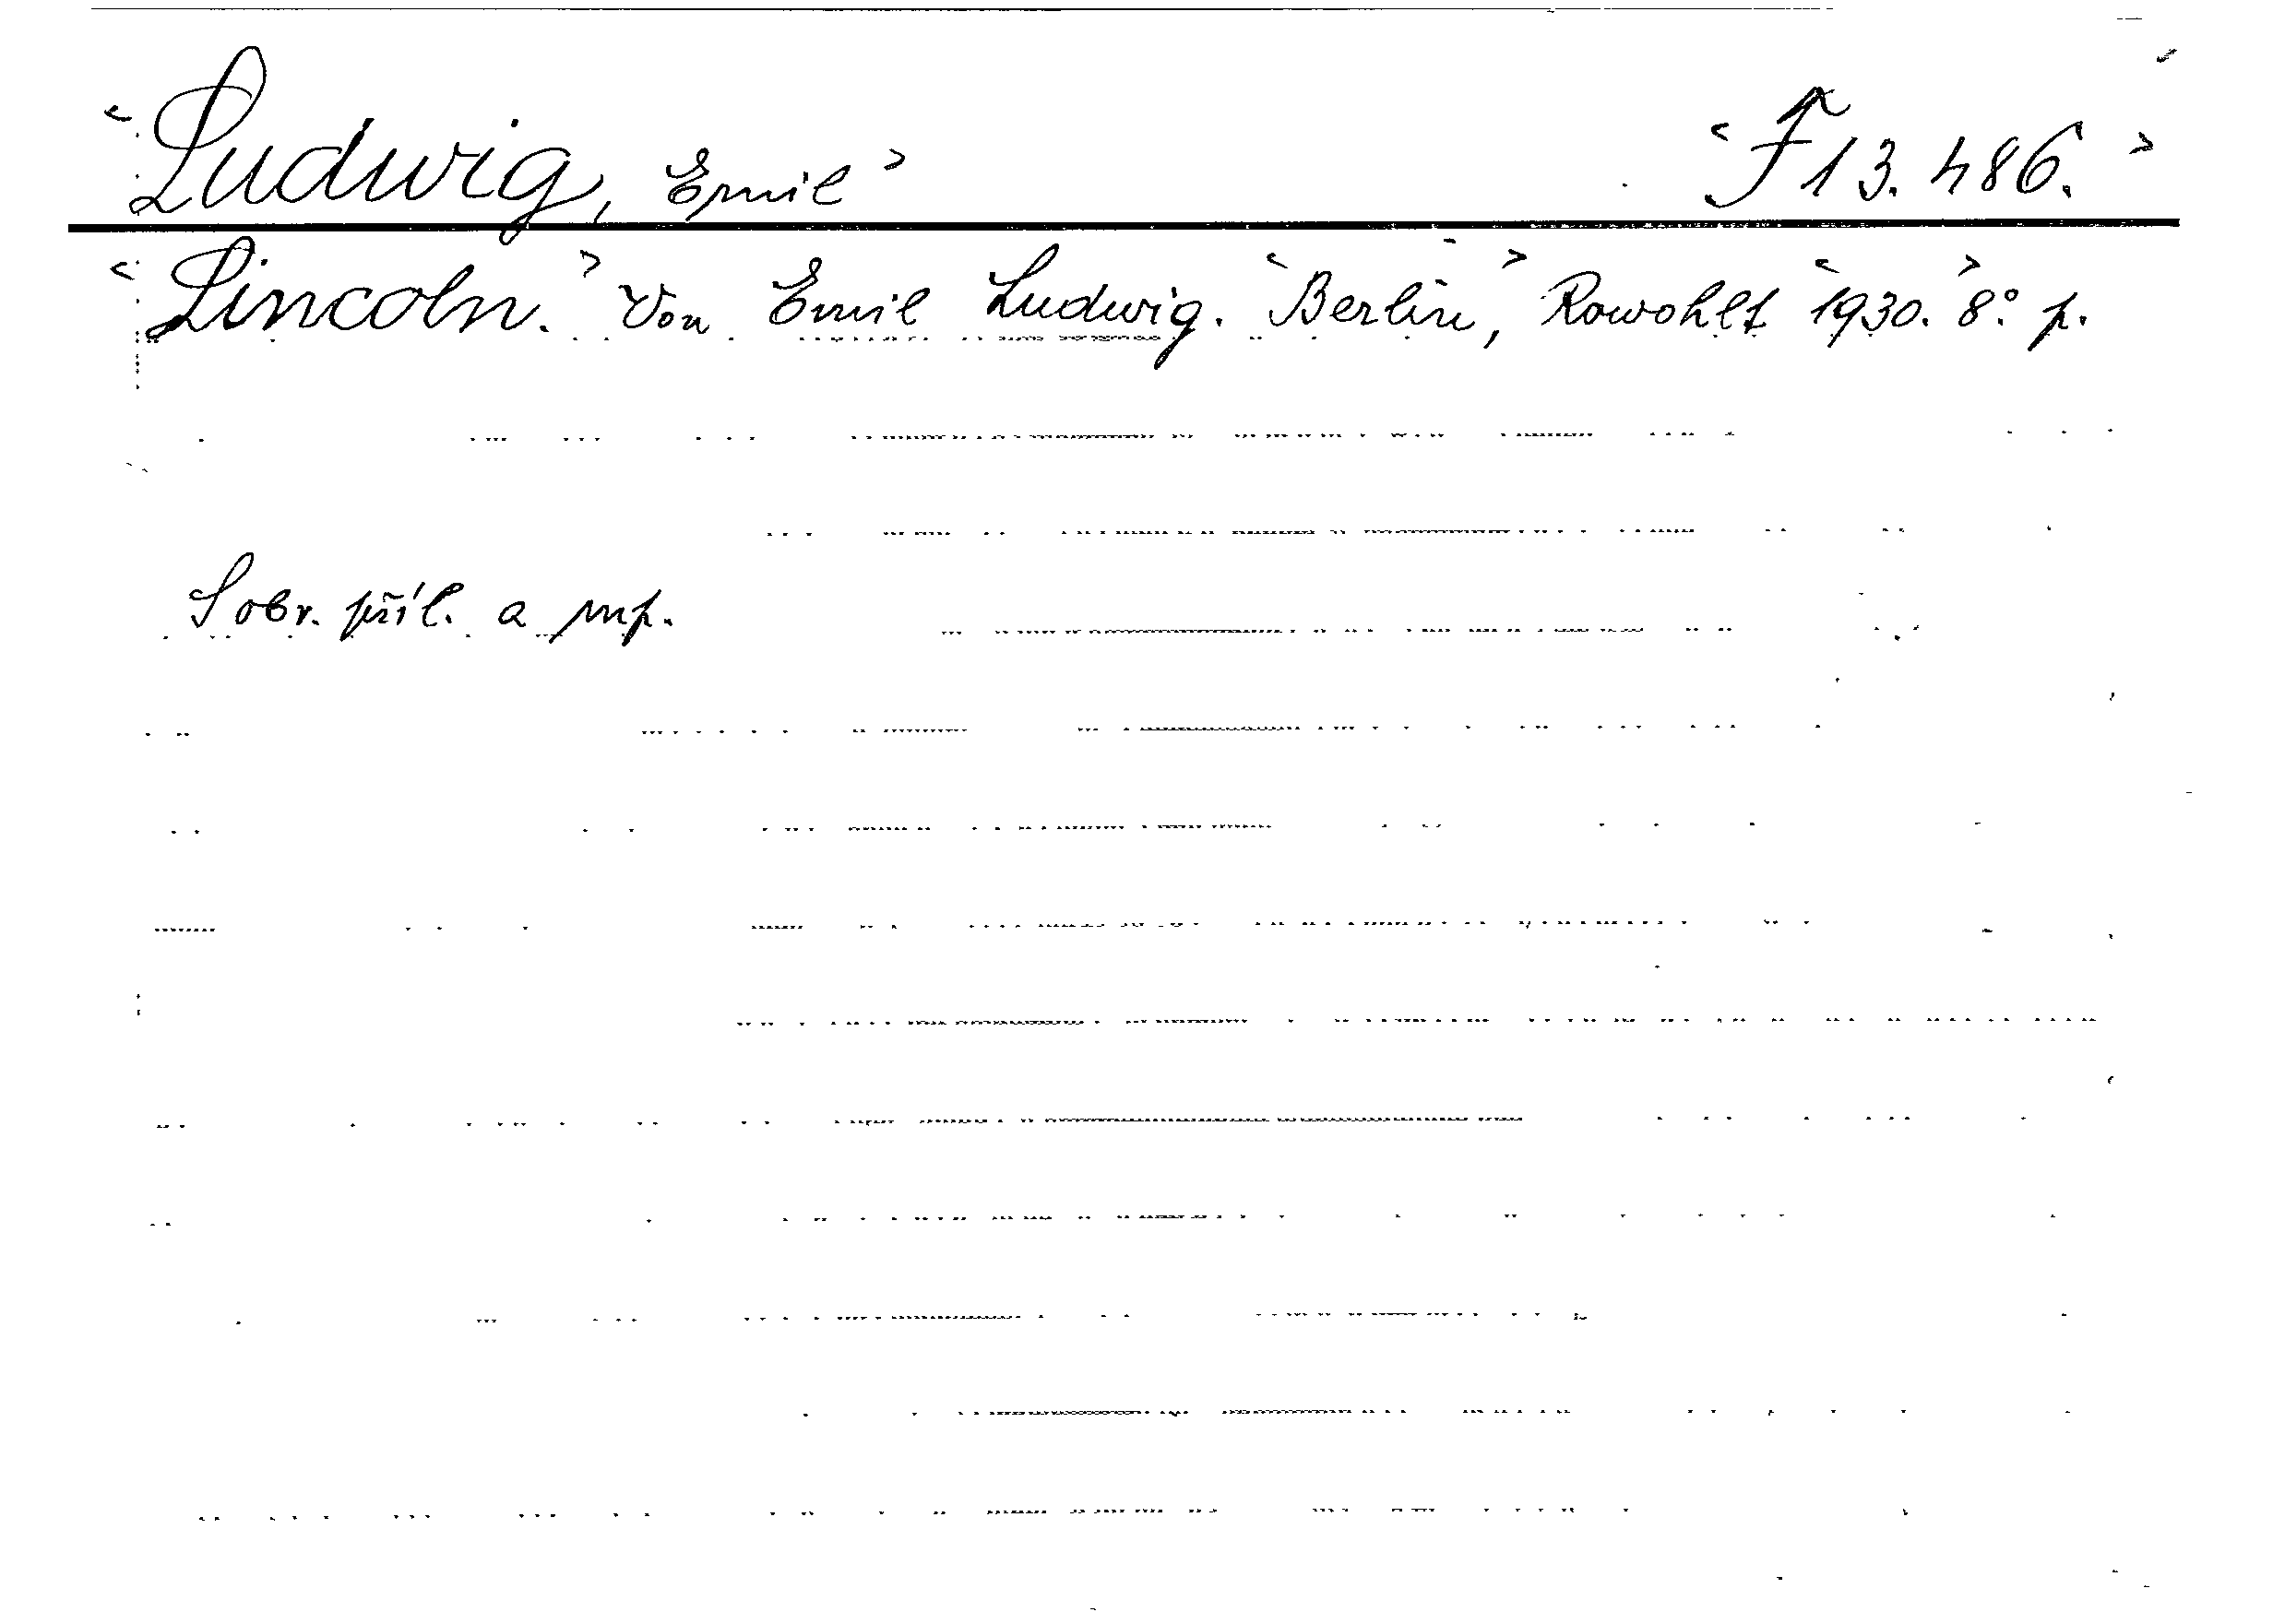 <Ludwig, Emil> <F 13.486.>
<Lincoln.> Von Emil Ludwig. <Berlin>, Rowohlt <1930.> 8° p.
S obr. příl. a mp.